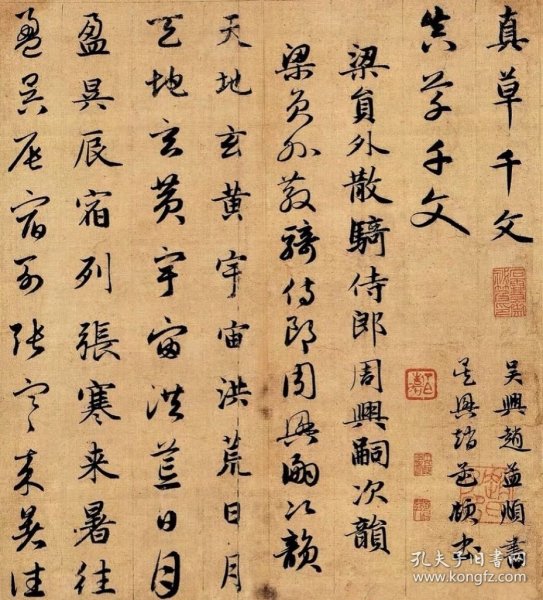 真草千文
吴興趙孟頫書
真草千文
吴興趙孟頫書
梁員外散騎侍郎周興嗣次韻
梁員外散騎侍郎周興嗣次韻
天地玄黄宇宙洪荒日月
天地玄黄宇宙洪荒日月
盈昃辰宿列張寒来暑往
盈昃辰宿列張寒来暑往
孔夫子旧书网
www.kongfz.com